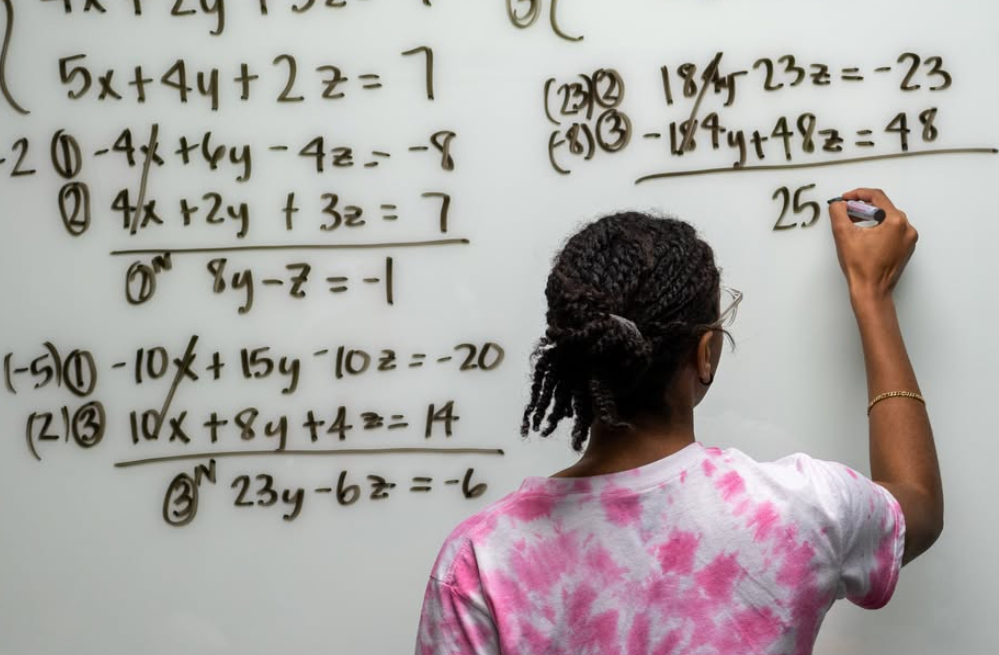 4x + 2y + 3z = 7
5x+4y+2z=7
-2 ① -4x +6y - 4z = -8
② 4x +2y + 3z = 7
②ᴺ 8y-z = -1
(-5)① -10x + 15y -10z = -20
(2)③ 10x +8y +4z= 14
③ᴺ 23y-6z = -6
③ {
(23)② 184y-23z = -23
(-8)③ -184y+48z = 48
25